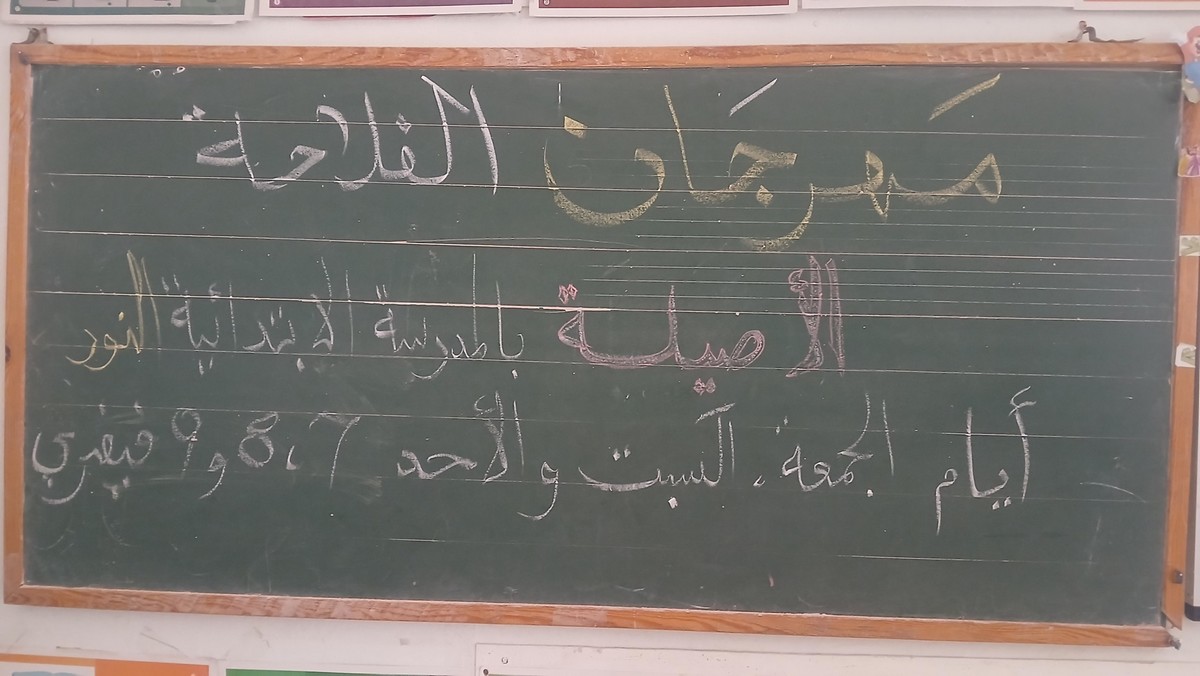 مَهرجَان الفلاحة
الأصيلة بالمدرسة الابتدائية النور
أيام الجمعة، السبت والأحد 7، 8 و 9 فيفري